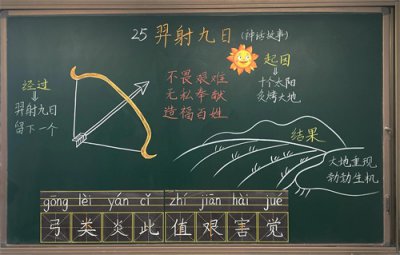 25 羿射九日 (神话故事)
起因
十个太阳
炙烤大地
不畏艰难
无私奉献
造福百姓
经过
羿射九日
留下一个
结果
大地重现
勃勃生机
gōng lèi yán cǐ zhí jiān hài jué
弓 类 炎 此 值 艰 害 觉